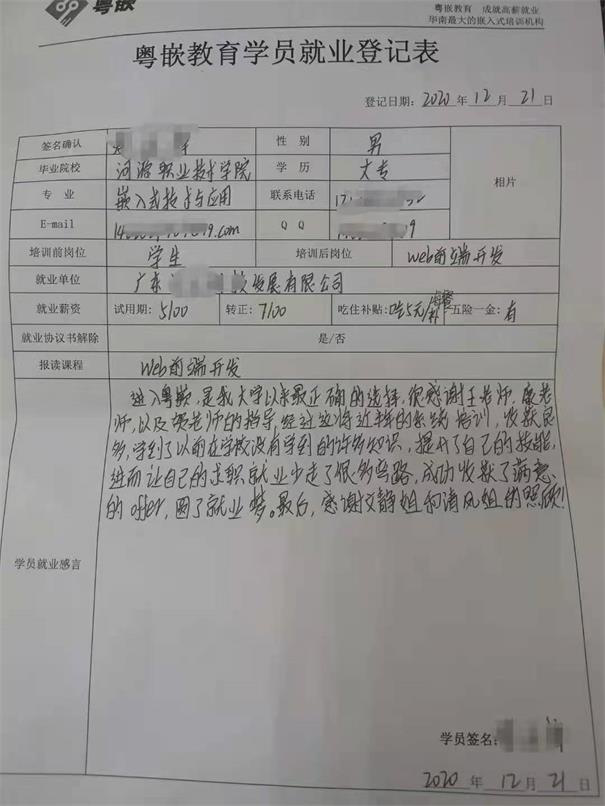 粤嵌
粤嵌教育 成就高薪就业
华南最大的嵌入式培训机构
粤嵌教育学员就业登记表
登记日期: 2020 年 12 月 21 日
签名确认 性 别 男
毕业院校 河源职业技术学院 学 历 大专 相片
专 业 嵌入式技术与应用 联系电话
E-mail .com Q Q
培训前岗位 学生 培训后岗位 web前端开发
就业单位 广东 发展有限公司
就业薪资 试用期: 5100 转正: 7100 吃住补贴: 吃5元/ 五险一金: 有
就业协议书解除 是/否
报读课程 web前端开发
进入粤嵌,是我大学以来最正确的选择,很感谢王老师,康老
师,以及 老师的指导,经过这将近半年的系统培训,收获良
多,学到了以前在学校没有学到的许多知识,提升了自己的技能,
进而让自己的求职就业少走了很多弯路,成功收获了满意
的offer,圆了就业梦。最后,感谢文静姐和清风姐的照顾!
学员就业感言
学员签名:
2020 年 12 月 21 日